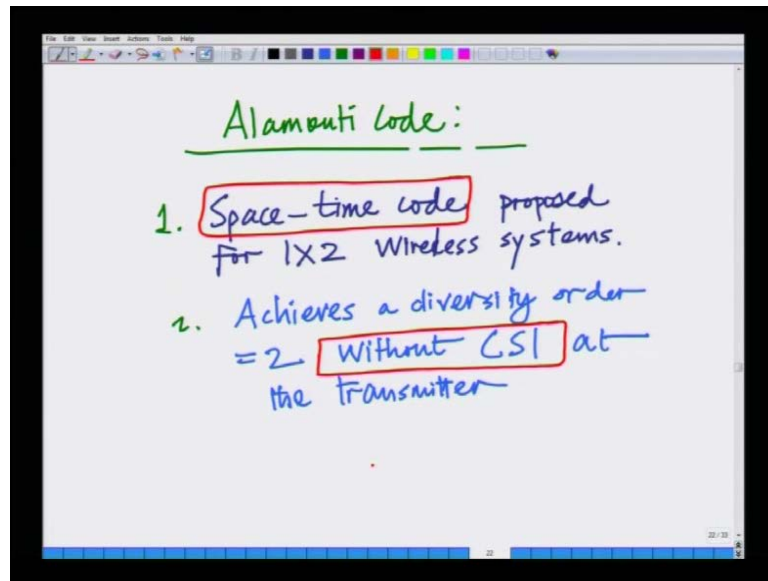 File Edit View Insert Actions Tools Help
Alamouti Code:
1. Space-time code proposed
for 1X2 Wireless systems.
2. Achieves a diversity order
= 2 Without CSI at
the transmitter
22/33
22